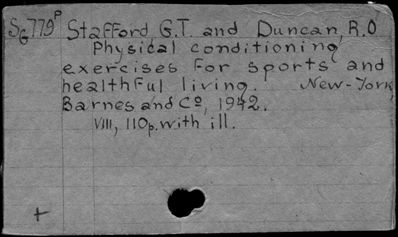 SG779P Stafford, G.T. and Duncan, R.O
Physical conditioning
exercises for sports and
healthful living. New-York,
Barnes and Cº, 1942.
VIII, 110p. with ill.
+